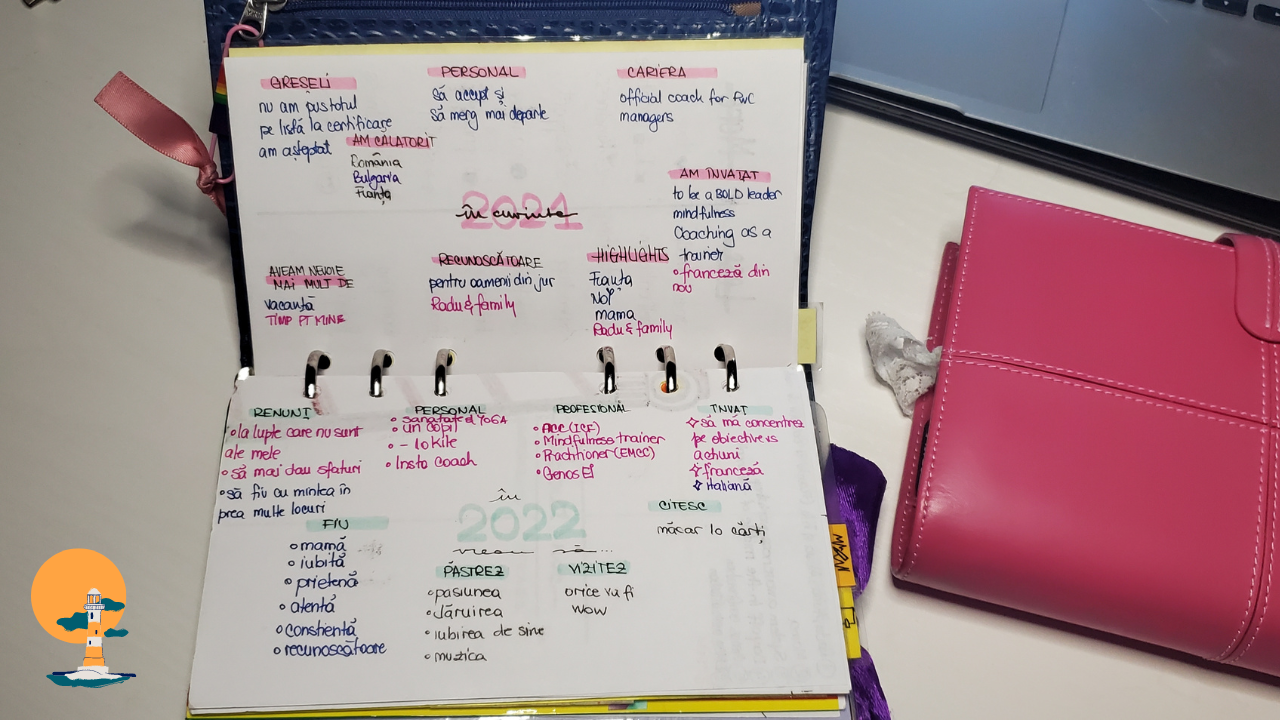 GREȘELI
nu am pus totul
pe listă la certificare
am așteptat
PERSONAL
să accept și
să merg mai departe
CARIERA
official coach for PwC
managers
AM CALATORIT
România
Bulgaria
Franța
AM ÎNVAȚAT
to be a BOLD leader
mindfulness
Coaching as a
trainer
franceză din
nou
2021
în cuvinte
AVEAM NEVOIE
MAI MULT DE
vacanță
TIMP PT MINE
RECUNOSCĂTOARE
pentru oamenii din jur
Radu & family
HIGHLIGHTS
Franța
NOI
mama
Radu & family
RENUNȚ
la lupte care nu sunt
ale mele
să mai dau sfaturi
să fiu cu mintea în
prea multe locuri
PERSONAL
sănătate și YOGA
un copil
- 10 kile
Insta Coach
PROFESIONAL
ACC (ICF)
Mindfulness trainer
Practitioner (EMCC)
Genos EI
ÎNVAȚ
să mă concentrez
pe obiective vs
acțiuni
franceză
italiană
FIU
mamă
iubită
prietenă
atentă
conștientă
recunoscătoare
în
2022
vreau să...
CITESC
măcar 10 cărți
PĂSTREZ
pasiunea
dăruirea
iubirea de sine
muzica
VIZITEZ
orice va fi
wow